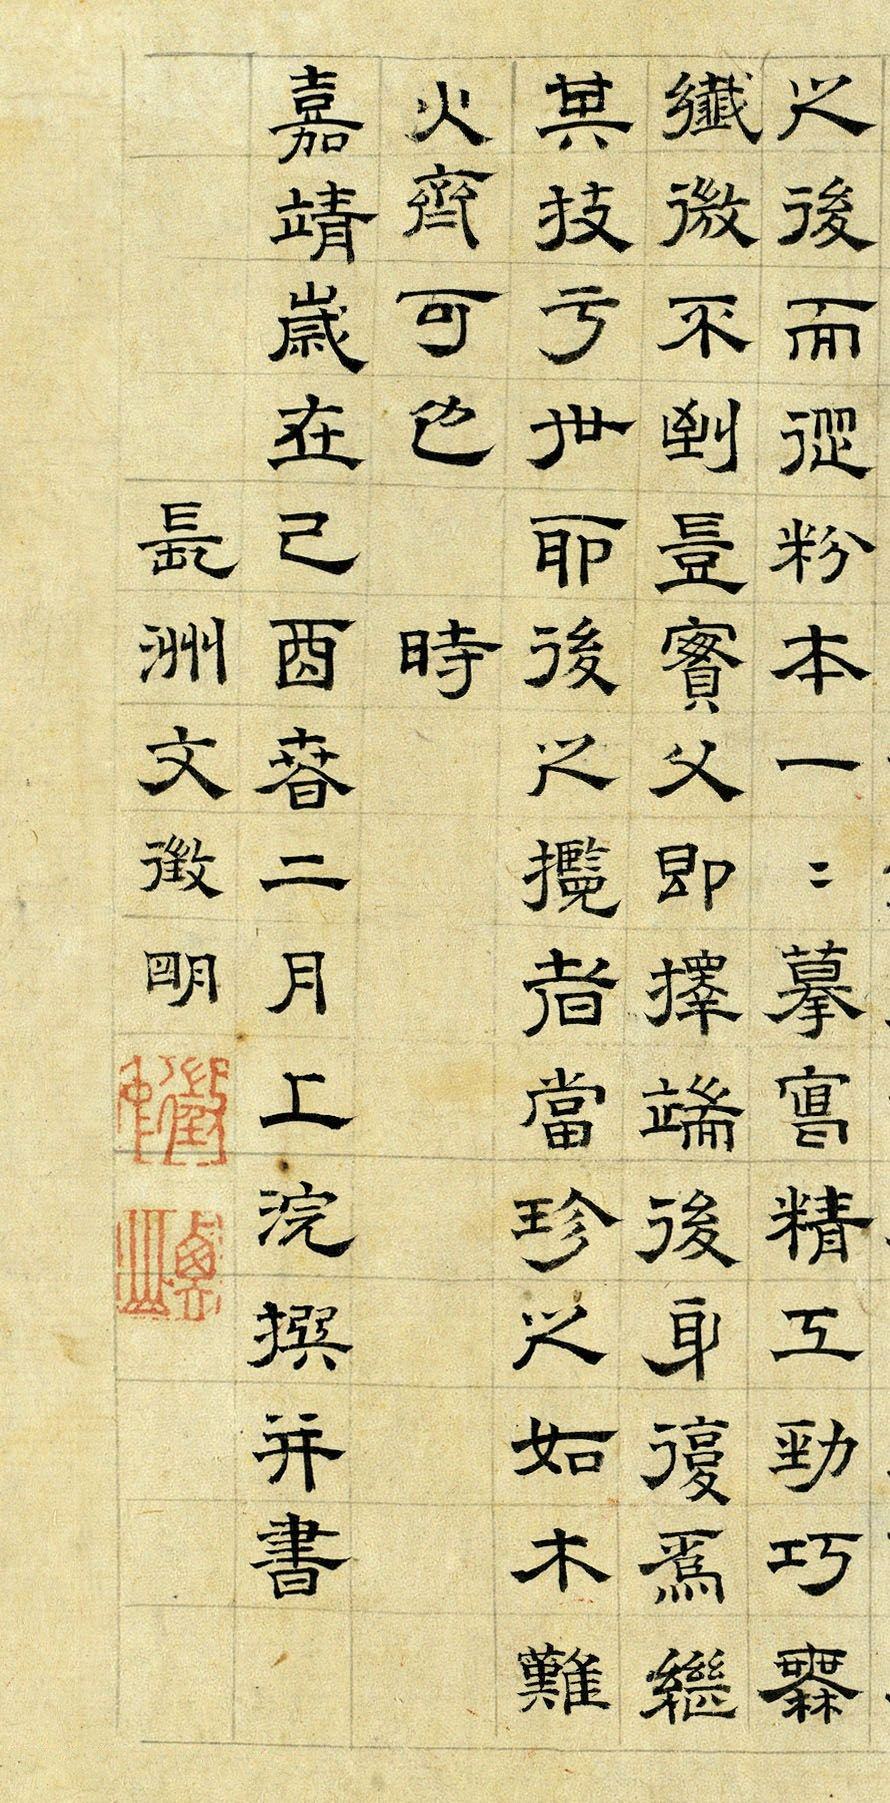 之後而從粉本一〻摹寫精工勁巧無
纖微不到豈實父即擇端後身復爲繼
其技亏世耶後之攬者當珍之如木難
火齊可也 時
嘉靖歲在己酉春二月上浣撰并書
長洲文徵明